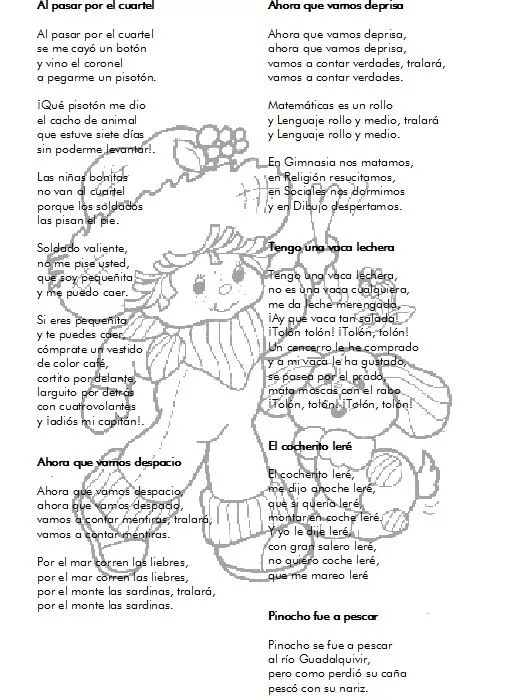 Al pasar por el cuartel
Al pasar por el cuartel
se me cayó un botón
y vino el coronel
a pegarme un pisotón.
¡Qué pisotón me dio
el cacho de animal
que estuve siete días
sin poderme levantar!.
Las niñas bonitas
no van al cuartel
porque los soldados
las pisan el pie.
Soldado valiente,
no me pise usted,
que soy pequeñita
y me puedo caer.
Si eres pequeñita
y te puedes caer,
cómprate un vestido
de color café,
cortito por delante,
larguito por detrás
con cuatrovolantes
y ¡adiós mi capitán!.
Ahora que vamos despacio
Ahora que vamos despacio,
ahora que vamos despacio,
vamos a contar mentiras, tralará,
vamos a contar mentiras.
Por el mar corren las liebres,
por el mar corren las liebres,
por el monte las sardinas, tralará,
por el monte las sardinas.
Ahora que vamos deprisa
Ahora que vamos deprisa,
ahora que vamos deprisa,
vamos a contar verdades, tralará,
vamos a contar verdades.
Matemáticas es un rollo
y Lenguaje rollo y medio, tralará
y Lenguaje rollo y medio.
En Gimnasia nos matamos,
en Religión resucitamos,
en Sociales nos dormimos
y en Dibujo despertamos.
Tengo una vaca lechera
Tengo una vaca lechera,
no es una vaca cualquiera,
me da leche merengada,
¡Ay que vaca tan salada!
¡Tolón tolón! ¡Tolón, tolón!
Un cencerro le he comprado
y a mi vaca le ha gustado,
se pasea por el prado,
mata moscas con el rabo
¡Tolón, tolón! ¡Tolón, tolón!
El cocherito leré
El cocherito leré,
me dijo anoche leré,
que si quería leré,
montar en coche leré.
Y yo le dije leré,
con gran salero leré,
no quiero coche leré,
que me mareo leré
Pinocho fue a pescar
Pinocho se fue a pescar
al río Guadalquivir,
pero como perdió su caña
pescó con su nariz.